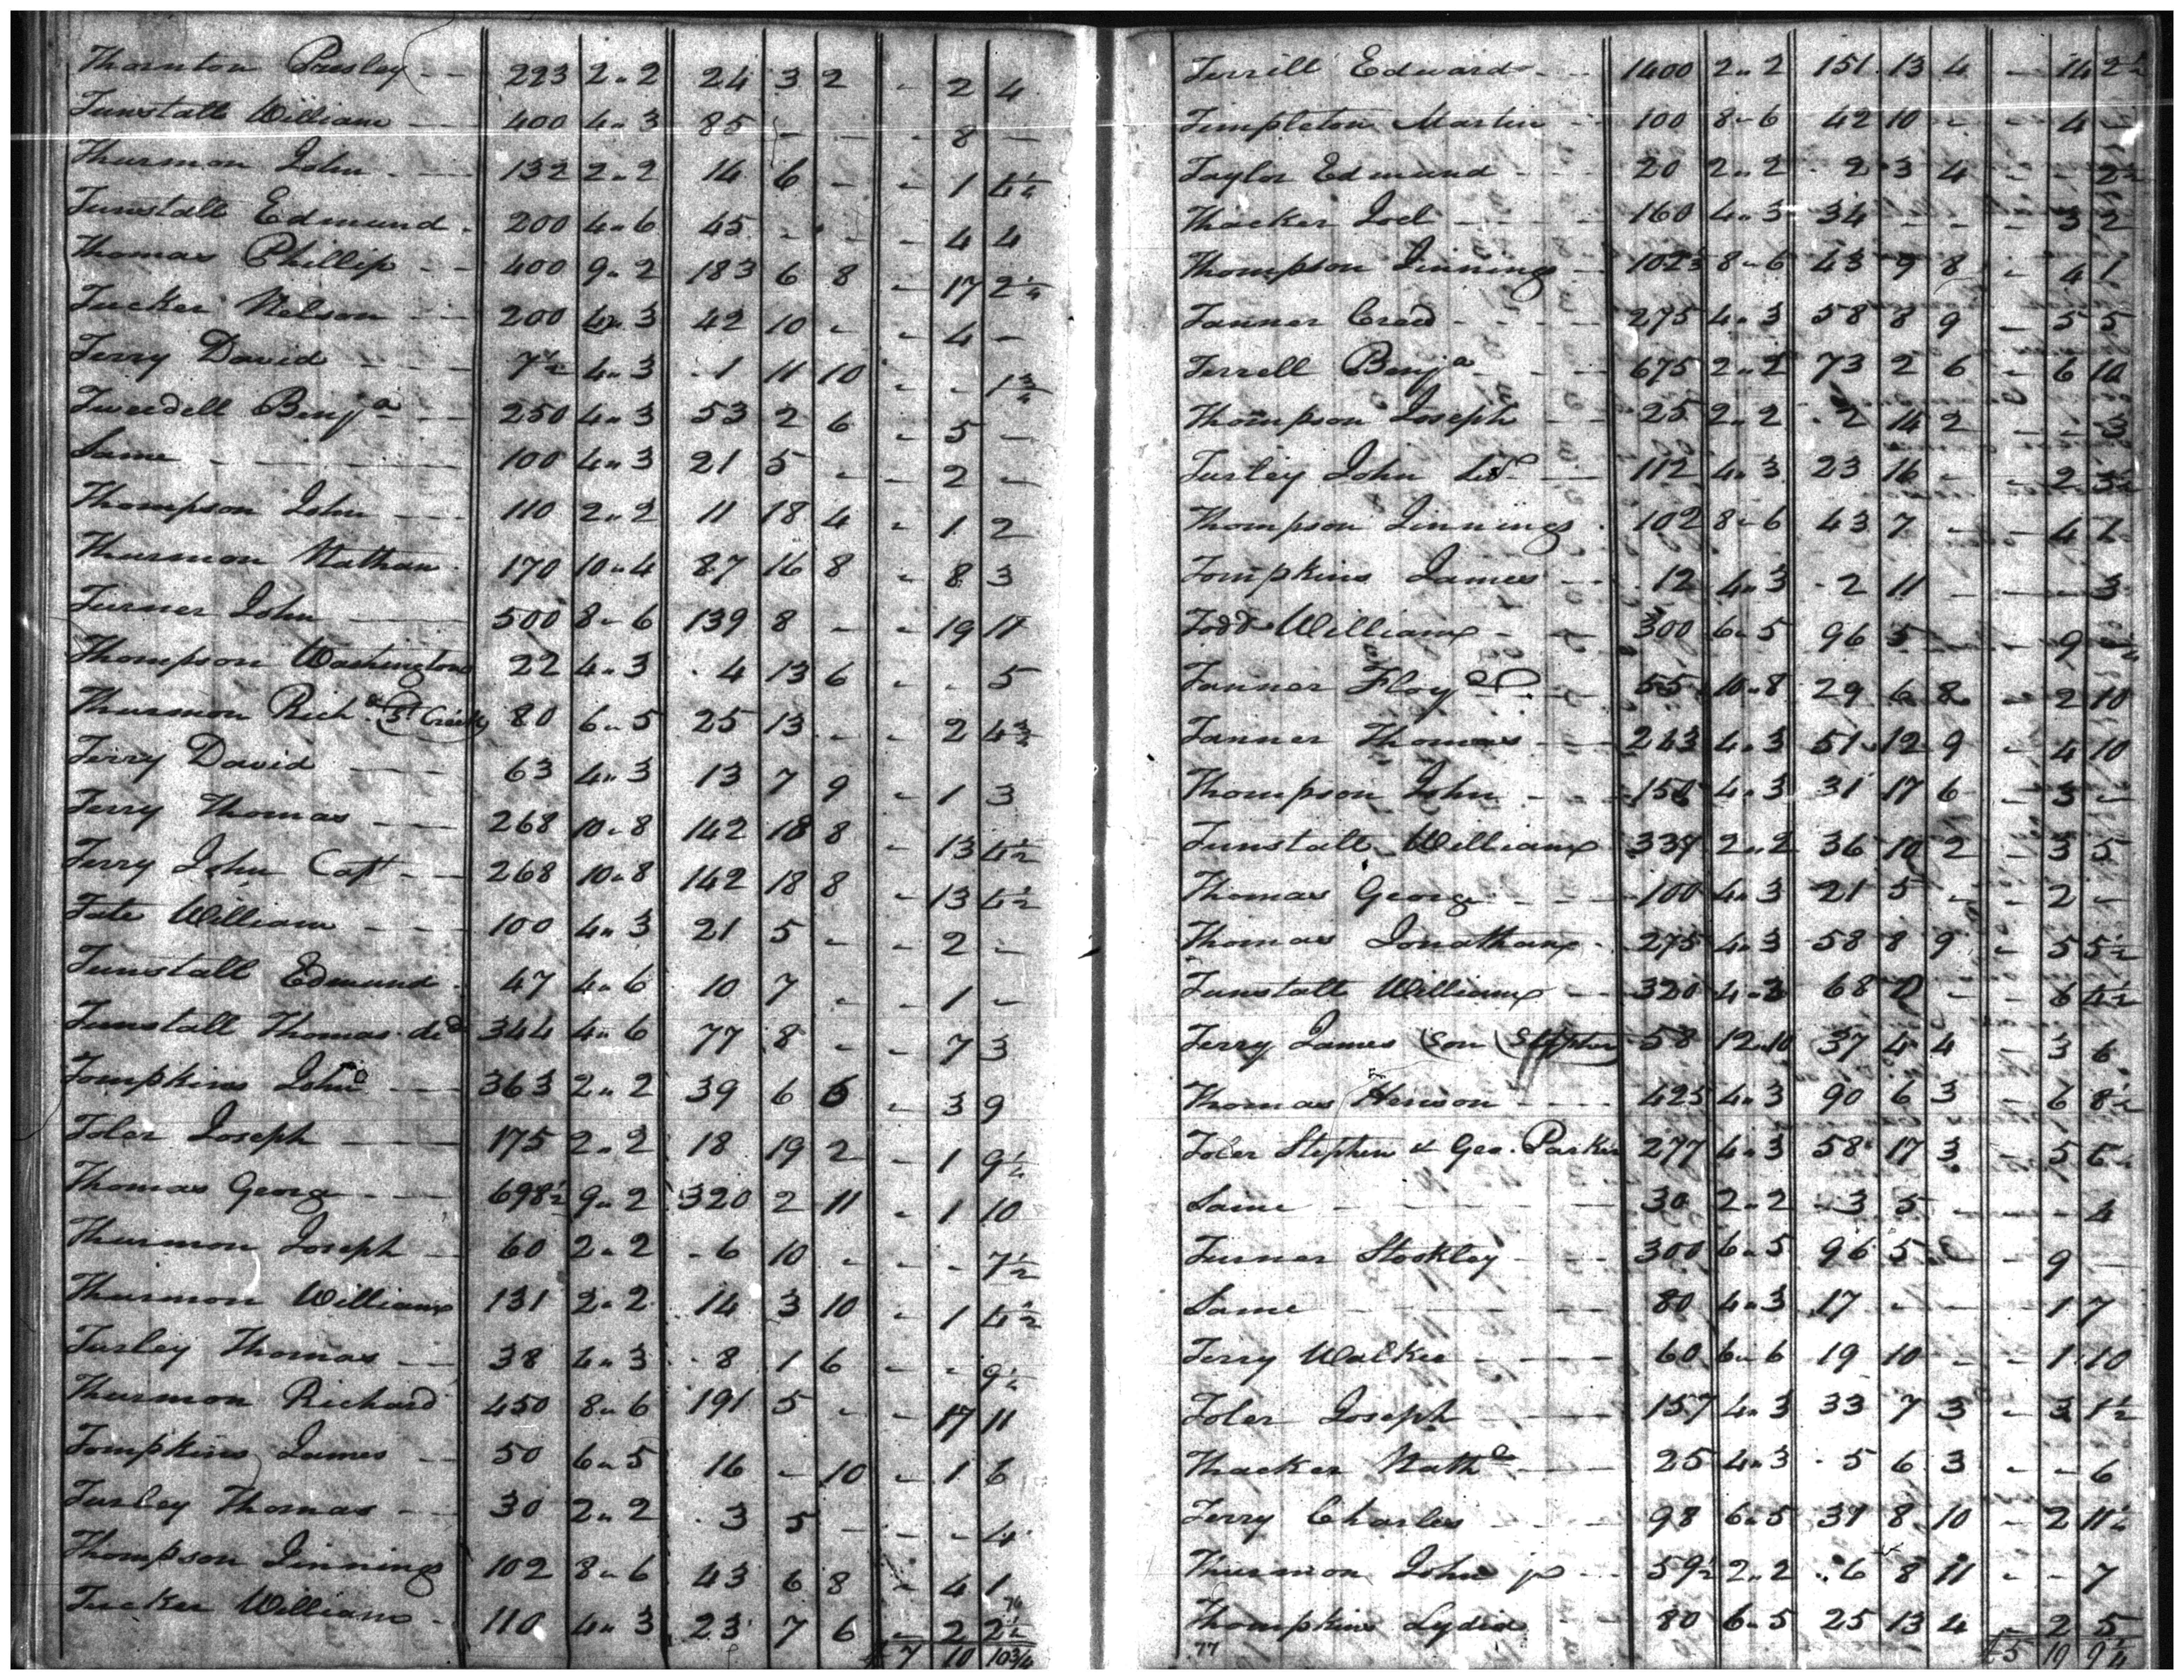 Thornton Presley -- 223 2"2 24 3 2 - 2 4
Tunstall William -- 400 4"3 85 - - - 8 -
Thurmon John -- 132 2"2 14 6 - - 1 4¼
Tunstall Edmund. 200 4"6 45 - - - 4 4
Thomas Phillip -- 400 9"2 183 6 8 - 17 2¼
Tucker Nelson -- 200 4"3 42 10 - - 4 -
Terry David --- 7½ 4"3 1 11 10 - - 1¾
Tweedell Benjª -- 250 4"3 53 2 6 - 5 -
Same ---- 100 4"3 21 5 - - 2 -
Thompson John -- 110 2"2 11 18 4 - 1 2
Thurmon Nathan 170 10"4 87 16 8 - 8 3
Turner John -- 500 8"6 139 8 - - 19 11
Thompson Washington 22 4"3 4 13 6 - - 5
Thurmon Richd (S Creek) 80 6"5 25 13 - - 2 4¾
Terry David -- 63 4"3 13 7 9 - 1 3
Terry Thomas -- 268 10"8 142 18 8 - 13 4½
Terry John Capt -- 268 10"8 142 18 8 - 13 4½
Tate William --- 100 4"3 21 5 - - 2 -
Tunstall Edmund. 47 4"6 10 7 - - 1 -
Tunstall Thomas decd 344 4"6 77 8 - - 7 3
Tompkins John -- 363 2"2 39 6 6 - 3 9
Toler Joseph -- 175 2"2 18 19 2 - 1 9¼
Thomas George -- 698½ 9"2 320 2 11 - 1 10
Thurmon Joseph - 60 2"2 6 10 - - - 7½
Thurmon William 131 2"2 14 3 10 - 1 4½
Turley Thomas -- 38 4"3 8 1 6 - - 9¼
Thurmon Richard 450 8"6 191 5 - - 17 11
Tompkins James -- 50 6"5 16 - 10 - 1 6
Turley Thomas -- 30 2"2 3 5 - - - 4
Thompson Jinnings 102 8"6 43 6 8 - 4 1
Tucker William - 110 4"3 23 7 6 - 2 2½
76
£ 7 10 10¾
Terrill Edward -- 1400 2"2 151 13 4 - 14 2½
Templeton Martin -- 100 8"6 42 10 - - 4 -
Taylor Edmund --- 20 2"2 2 3 4 - - 2½
Thacker Joel --- 160 4"3 34 - - - 3 2
Thompson Jinnings - 102½ 8"6 43 9 8 - 4 1
Tanner Creed --- 275 4"3 58 8 9 - 5 5
Terrell Benjª -- 675 2"2 73 2 6 - 6 10
Thompson Joseph -- 25 2"2 2 14 2 - - 3
Turley John -- 112 4"3 23 16 - - 2 3½
Thompson Jinnings. 102 8"6 43 7 - - 4 1
Tompkins James -- 12 4"3 2 11 - - - 3
Todd William -- 300 6"5 96 5 - - 9
Tanner Floyd -- 55 10"8 29 6 8 - 2 10
Tanner Thomas -- 243 4"3 51 12 9 - 4 10
Thompson John -- 150 4"3 31 17 6 - 3 -
Tunstall William 337 2"2 36 10 2 - 3 5
Thomas George --- 100 4"3 21 5 - - 2 -
Thomas Jonathan - 275 4"3 58 8 9 - 5 5½
Tunstall William -- 320 4"3 68 - - 6 4½
Terry James (Son Stephen) 58 12"10 37 4 4 - 3 6
Thomas Henson --- 425 4"3 90 6 3 - 6 8½
Toler Stephen & Geo. Parker 277 4"3 58 17 3 - 5 6
Same ---- 30 2"2 3 5 - - - 4
Turner Stockley -- 300 6"5 96 5 - - 9
Same ---- 80 4"3 17 - - - 1 7
Terry Walker --- 60 6"6 19 10 - - 1 10
Toler Joseph --- 157 4"3 33 7 3 - 3 1½
Thacker Nathl -- 25 4"3 5 6 3 - - 6
Terry Charles --- 98 6"5 31 8 10 - 2 11½
Thurmon John jr -- 59½ 2"2 6 8 11 - - 7
Thompkins Lydia -- 80 6"5 25 13 4 - 2 5
77
£ 5 19 9¼